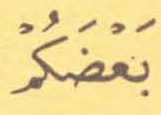 بَعْضَكُمْ